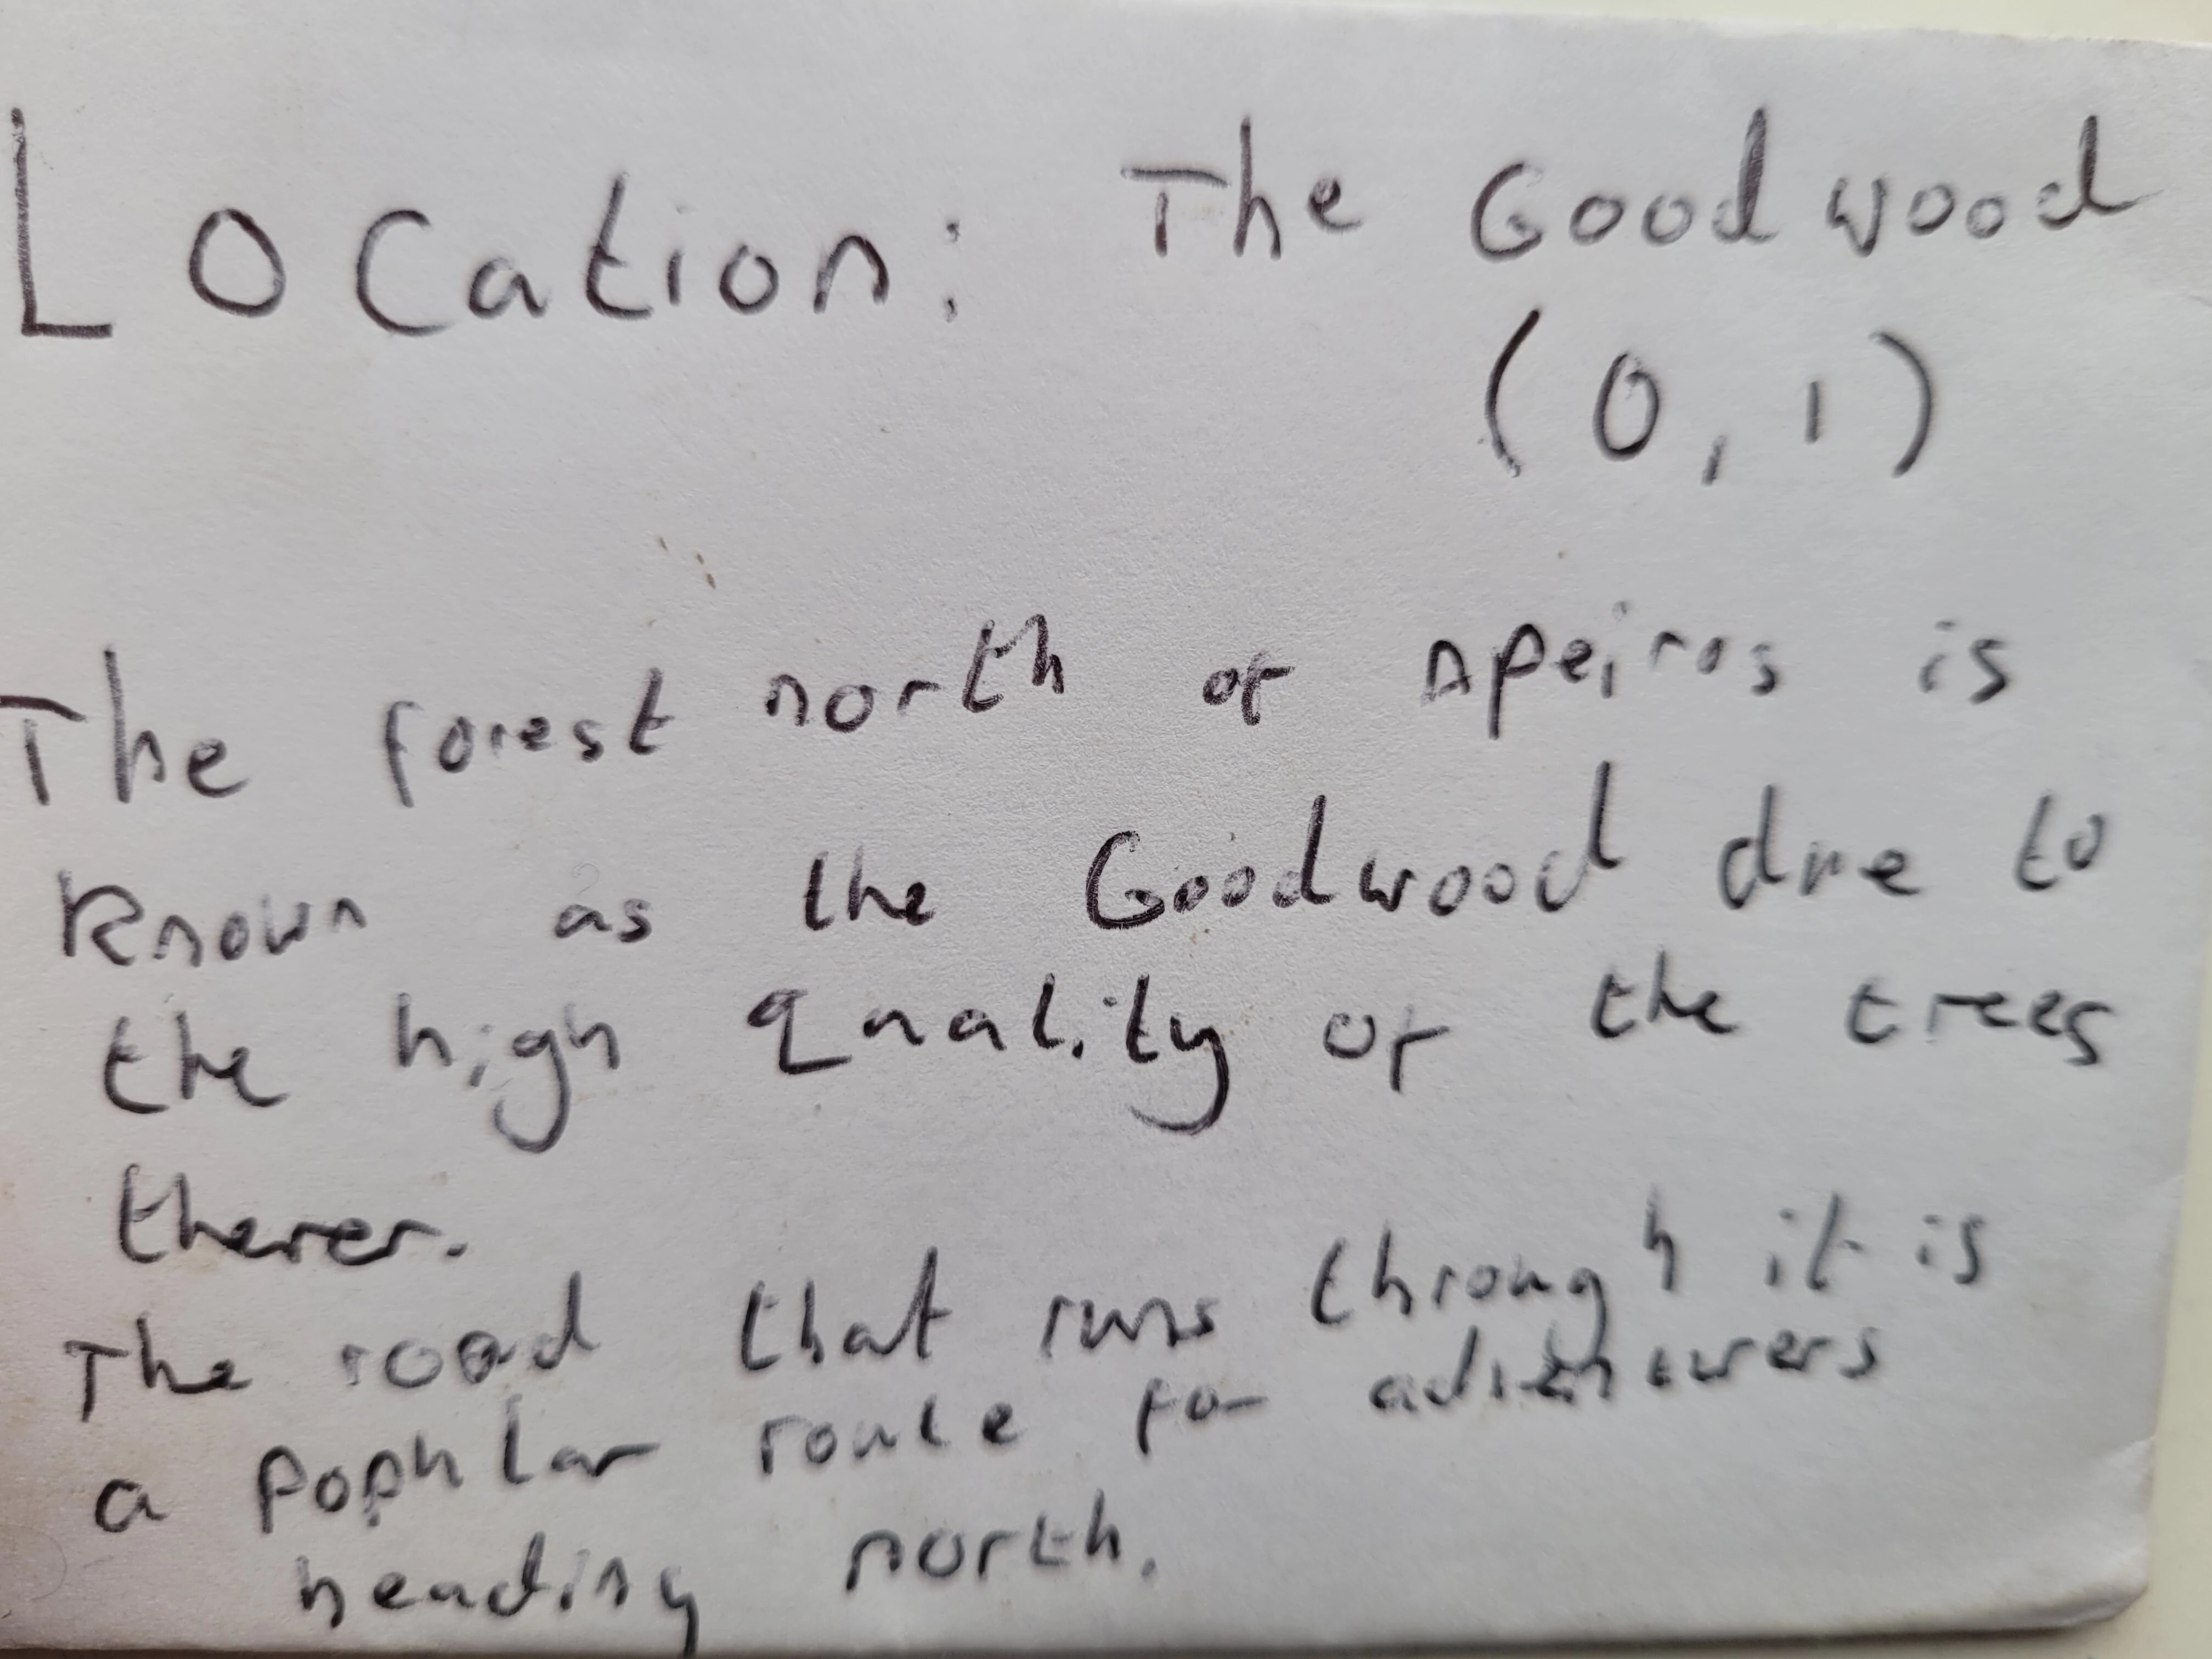 Location: The Goodwood
(0,1)
The forest north of Apeiros is
known as the Goodwood due to
the high quality of the trees
therer.
The road that runs through it is
a popular route for adventurers
heading north.